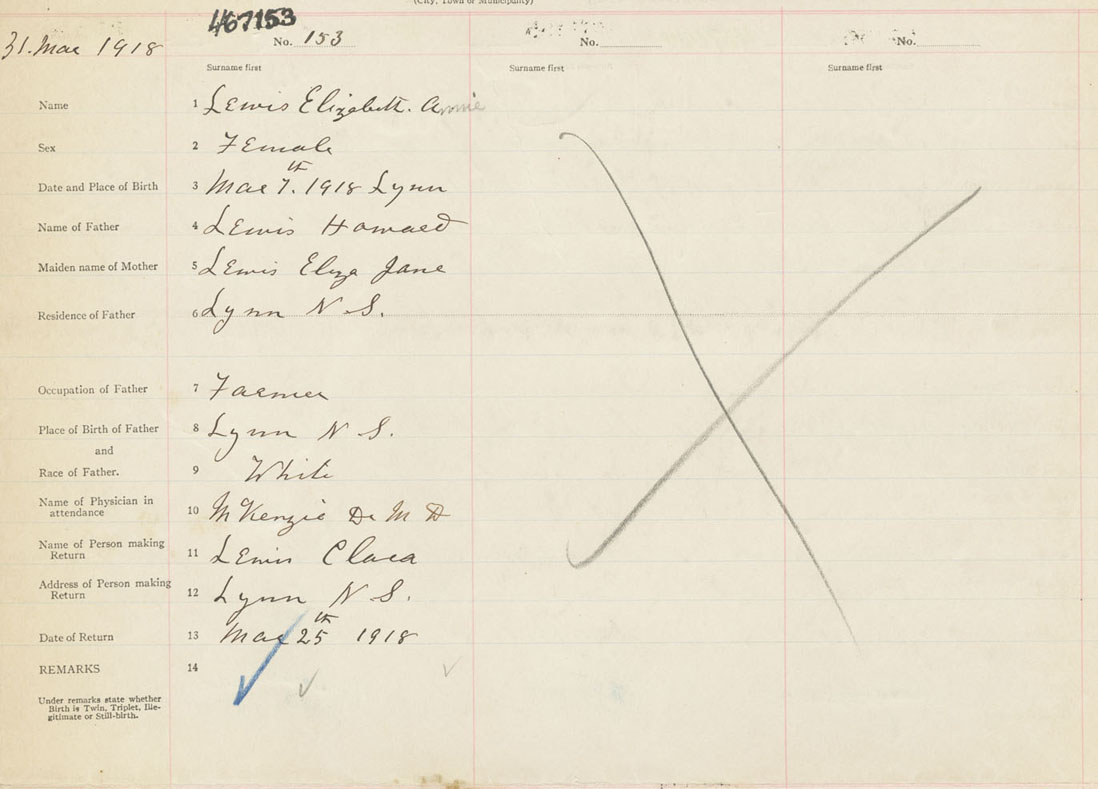 (City, Town or Municipality)
467153
31. Mar 1918
No. 153
No.
No.
Surname first
Surname first
Surname first
Name 1 Lewis Elizabeth. Annie
Sex 2 Female
Date and Place of Birth 3 Mar 7th. 1918 Lynn
Name of Father 4 Lewis Howard
Maiden name of Mother 5 Lewis Eliza Jane
Residence of Father 6 Lynn N S.
Occupation of Father 7 Farmer
Place of Birth of Father 8 Lynn N S.
and
Race of Father. 9 White
Name of Physician in
attendance 10 McKenzie Dr M D
Name of Person making
Return 11 Lewis Clara
Address of Person making
Return 12 Lynn N S.
Date of Return 13 Mar 25th 1918
REMARKS 14
Under remarks state whether
Birth is Twin, Triplet, Ille-
gitimate or Still-birth.